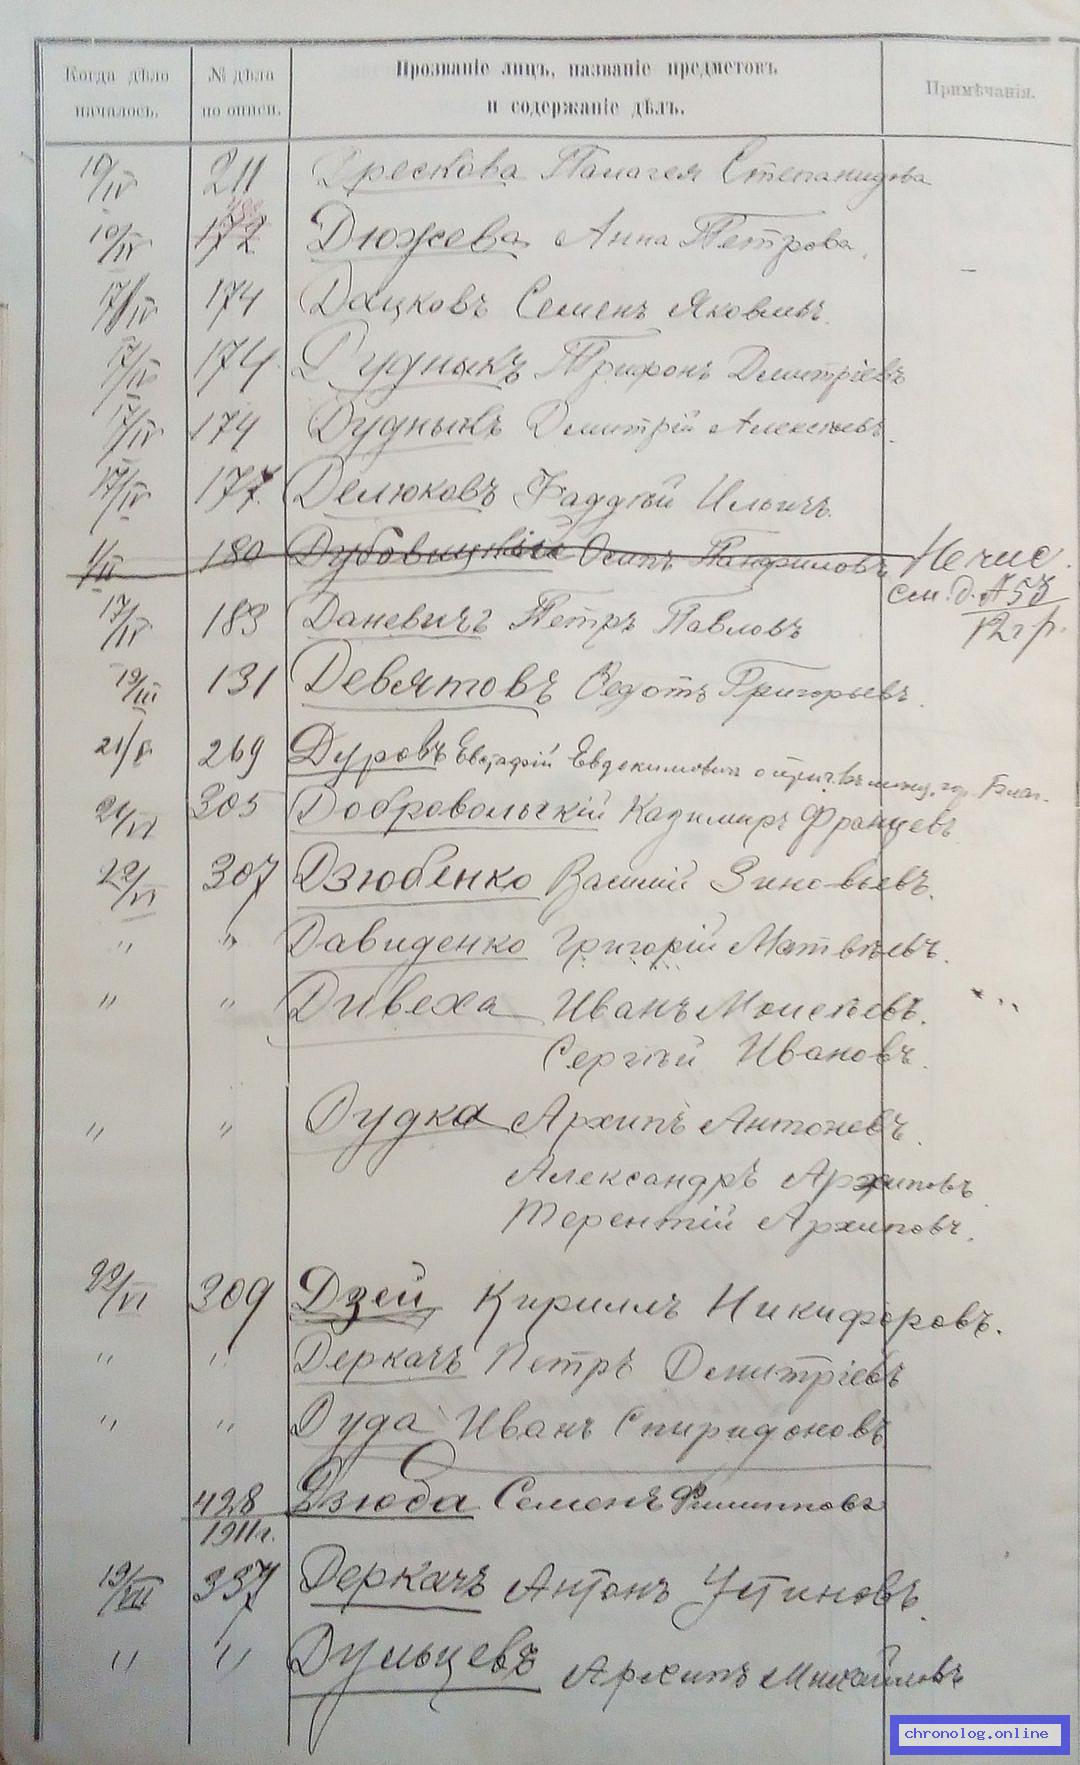 Когда дѣло началось.
№ дѣла по описи.
Прозваніе лицъ, названіе предметовъ и содержаніе дѣлъ.
Примѣчанія.
10/IV 211 Дрескова Палагея Степанидова
10/IV 172 Дюжева Анна Петрова.
17/IV 174 Дацковъ Семенъ Яковлевъ.
17/IV 174 Дудныкъ Трифонъ Дмитріевъ
17/IV 174 Дудныкъ Дмитрій Алексѣевъ.
17/IV 177 Делюковъ Фаддѣй Ильичъ.
180 Дубовицкій Осипъ Панфиловъ Не чис.
см. д. № 53
12 гр.
17/IV 183 Даневичъ Петръ Павловъ
19/III 131 Девятовъ Федотъ Григорьевъ.
269 Дуровъ Евстафій Евдокимовичъ о гор. Благ.
21/VI 305 Добровольскій Казимиръ Францевъ
22/VI 307 Дзюбенко Василій Зиновьевъ.
" " Давиденко Григорій Матвѣевъ.
" " Дивеха Иванъ Моисѣевъ.
Сергѣй Ивановъ.
" " Дудка Архипъ Антоновъ.
Александръ Архиповъ
Терентій Архиповъ.
22/VI 309 Дзей Кириллъ Никифоровъ.
" " Деркачъ Петръ Дмитріевъ
" " Дуда Иванъ Спиридоновъ
428 Дзюба Семенъ Филипповъ
1911 г.
19/VII 337 Деркачъ Антонъ Устиновъ.
" " Дульцевъ Архипъ Михайловъ
chronolog.online